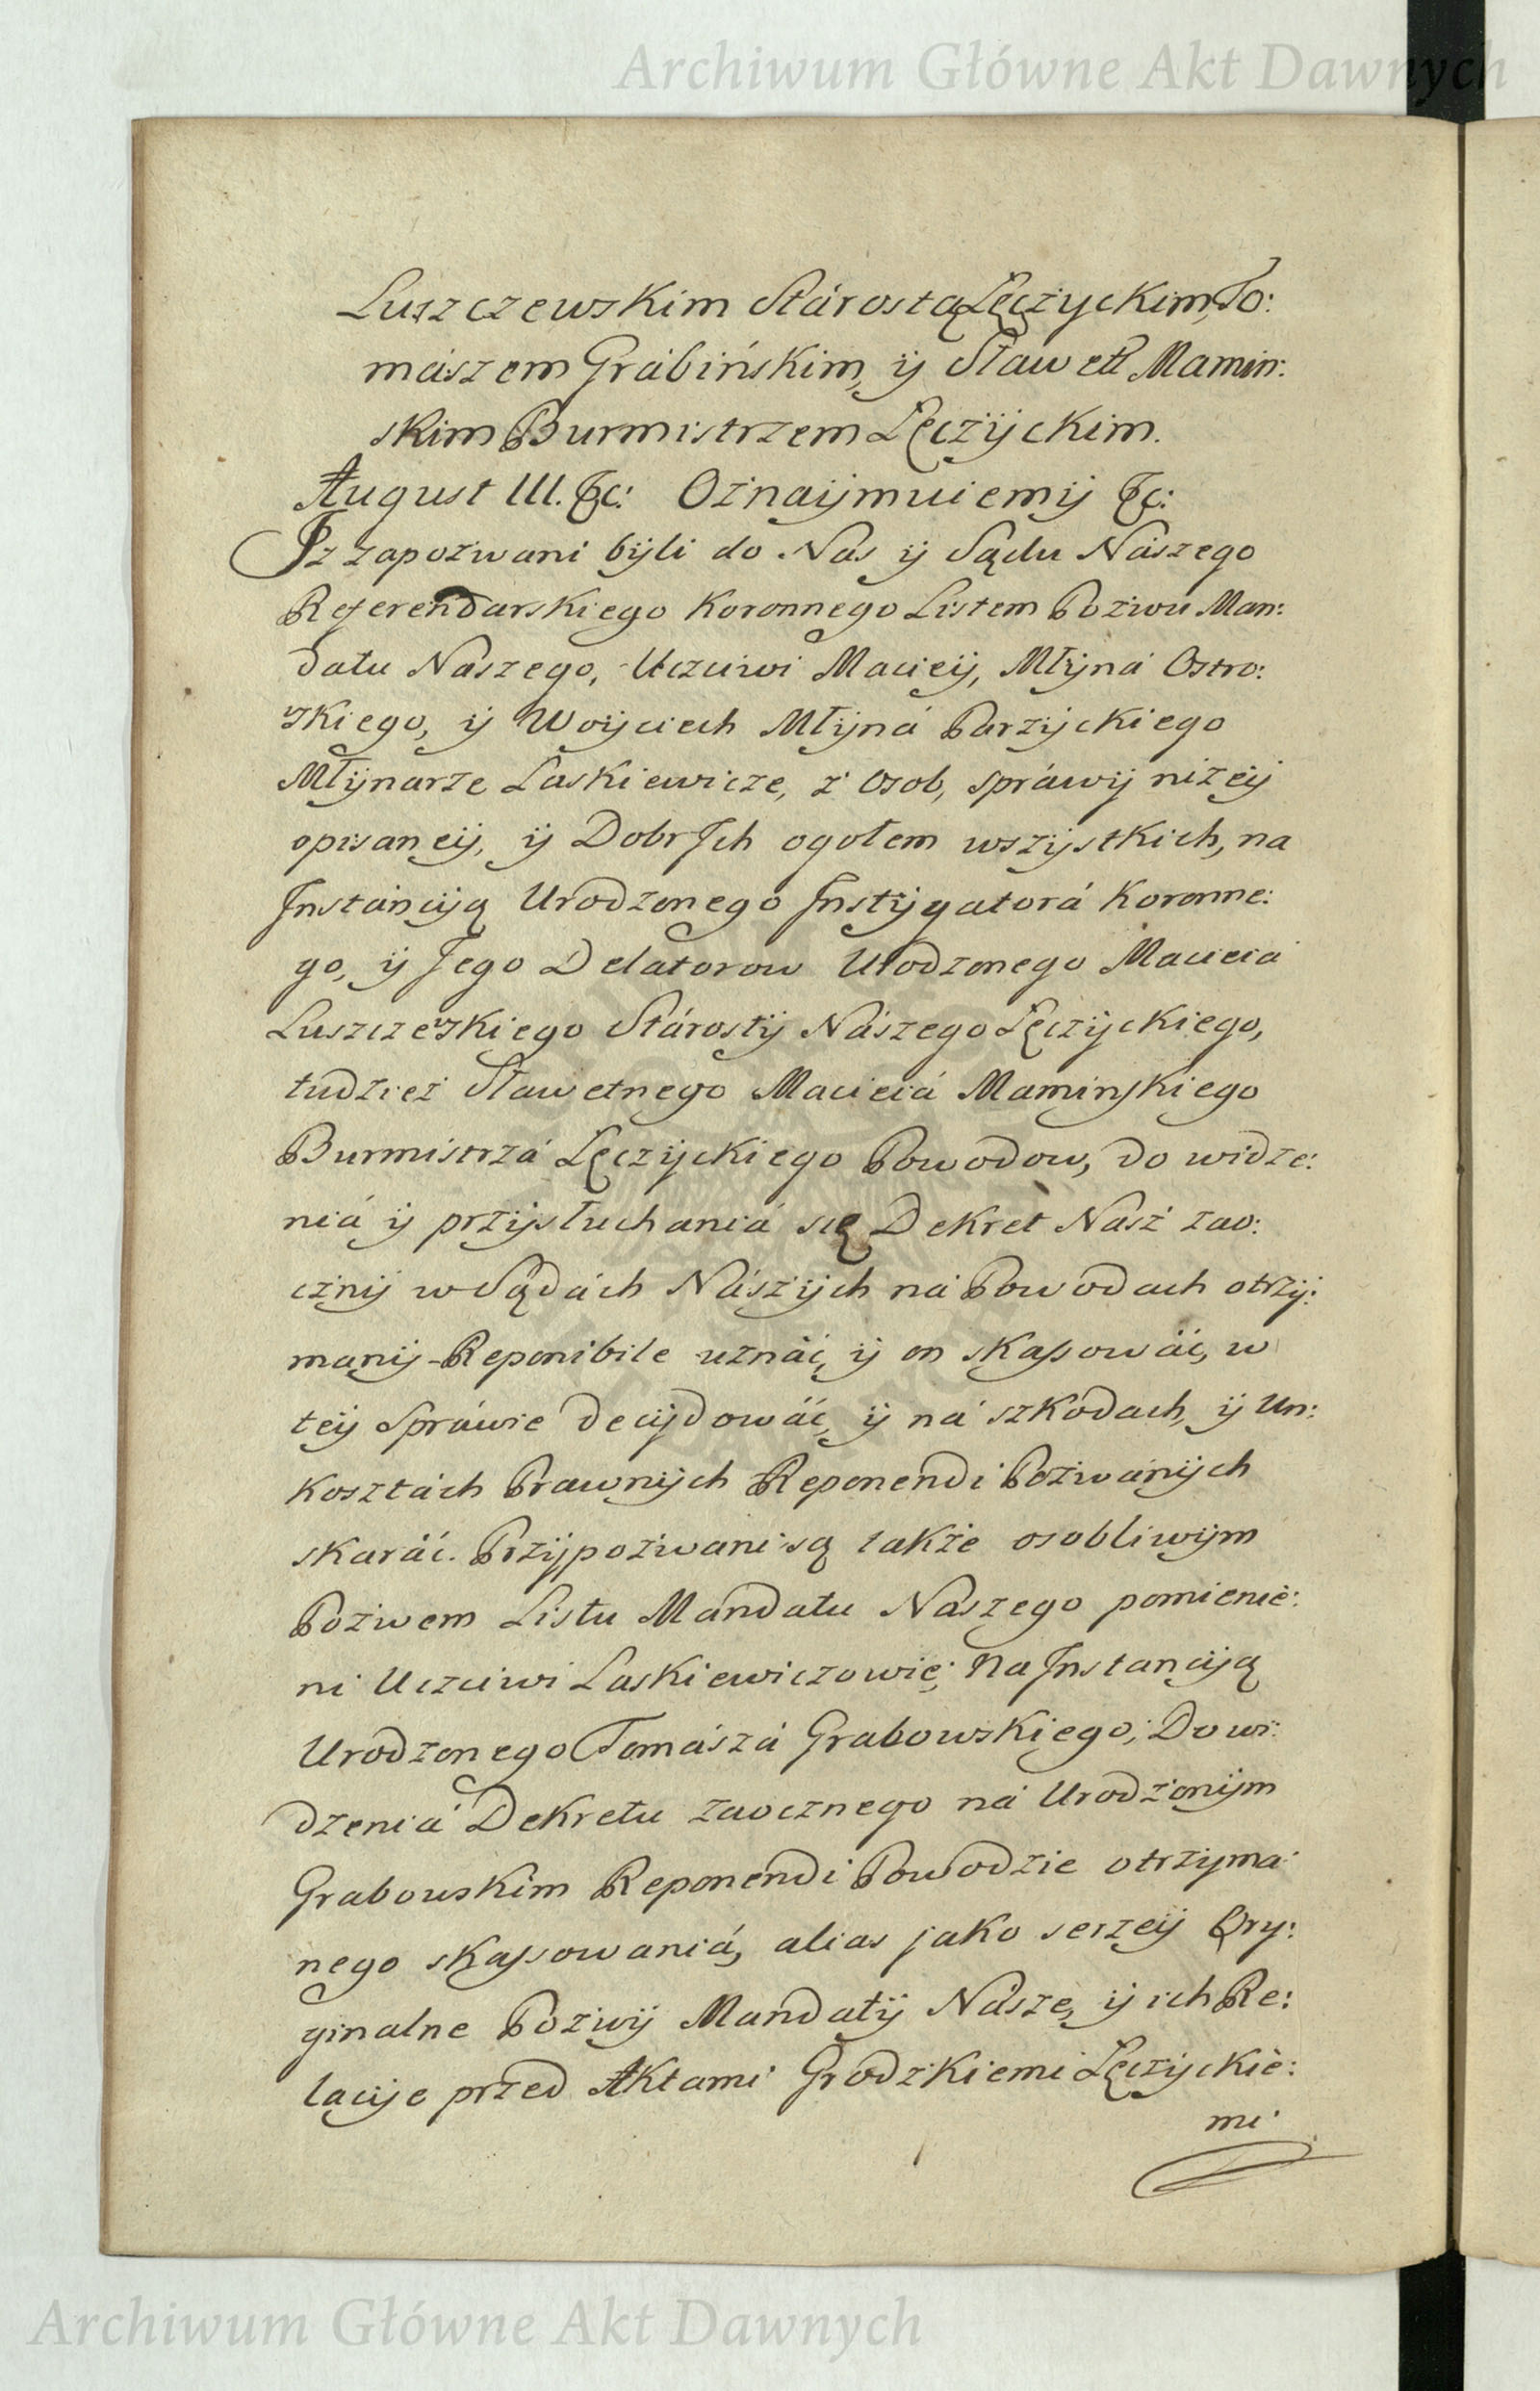 Archiwum Główne Akt Dawnych
Luszczewskim Stárostą Łęczyckim, To:
mászem Grábińskim, ÿ Sławett Mamin:
skim Burmistrzem Łęczÿckim.
August III. &c: Oznaÿmuiemÿ &c:
Jż zapozwani bÿli do Nas ÿ Sądu Nászego
Referendarskiego Koronnego Listem Pozwu Man:
datu Nászego, Uczciwi Macieÿ, Młÿná Ostro:
wskiego, ÿ Woÿciech Młÿná Parzÿckiego
Młÿnarze Laskiewicze, z Osob, spráwÿ niżeÿ
opisaneÿ, ÿ Dobr Jch ogołem wszÿstkich, na
Jnstáncÿą Urodzonego Jnstÿgatorá Koronne:
go, ÿ Jego Delatorow Urodzonego Macieiá
Luszczewskiego Stárostÿ Nászego Łęczÿckiego,
tudzież Sławetnego Macieiá Maminskiego
Burmistrzá Łęczÿckiego Powodow, do widze:
niá ÿ przÿsłuchaniá się Dekret Nasż zao:
cznÿ w Sądách Nászÿch ná Powodach otrzÿ:
manÿ Reponibile uznáć, ÿ on skassowáć, w
teÿ Spráwie decÿdowáć, ÿ ná szkodach, ÿ Un:
kosztách Prawnÿch Reponendi Pozwánÿch
skaráć. Przÿpozwani są także osobliwÿm
Pozwem Listu Mandatu Nászego pomienie:
ni Uczciwi Laskiewiczowie; Na Jnstancÿą
Urodzonego Tomászá Grabowskiego, Do wi:
dzeniá Dekretu zaocznego ná Urodzonÿm
Grabowskim Reponendi Powodzie otrzyma:
nego skassowaniá, alias jako szerzeÿ Ory:
ginalne Pozwÿ Mandatÿ Násze, ÿ ich Re:
lacÿe przed Aktami Grodzkiemi Łęczÿckie:
mi
Archiwum Główne Akt Dawnych